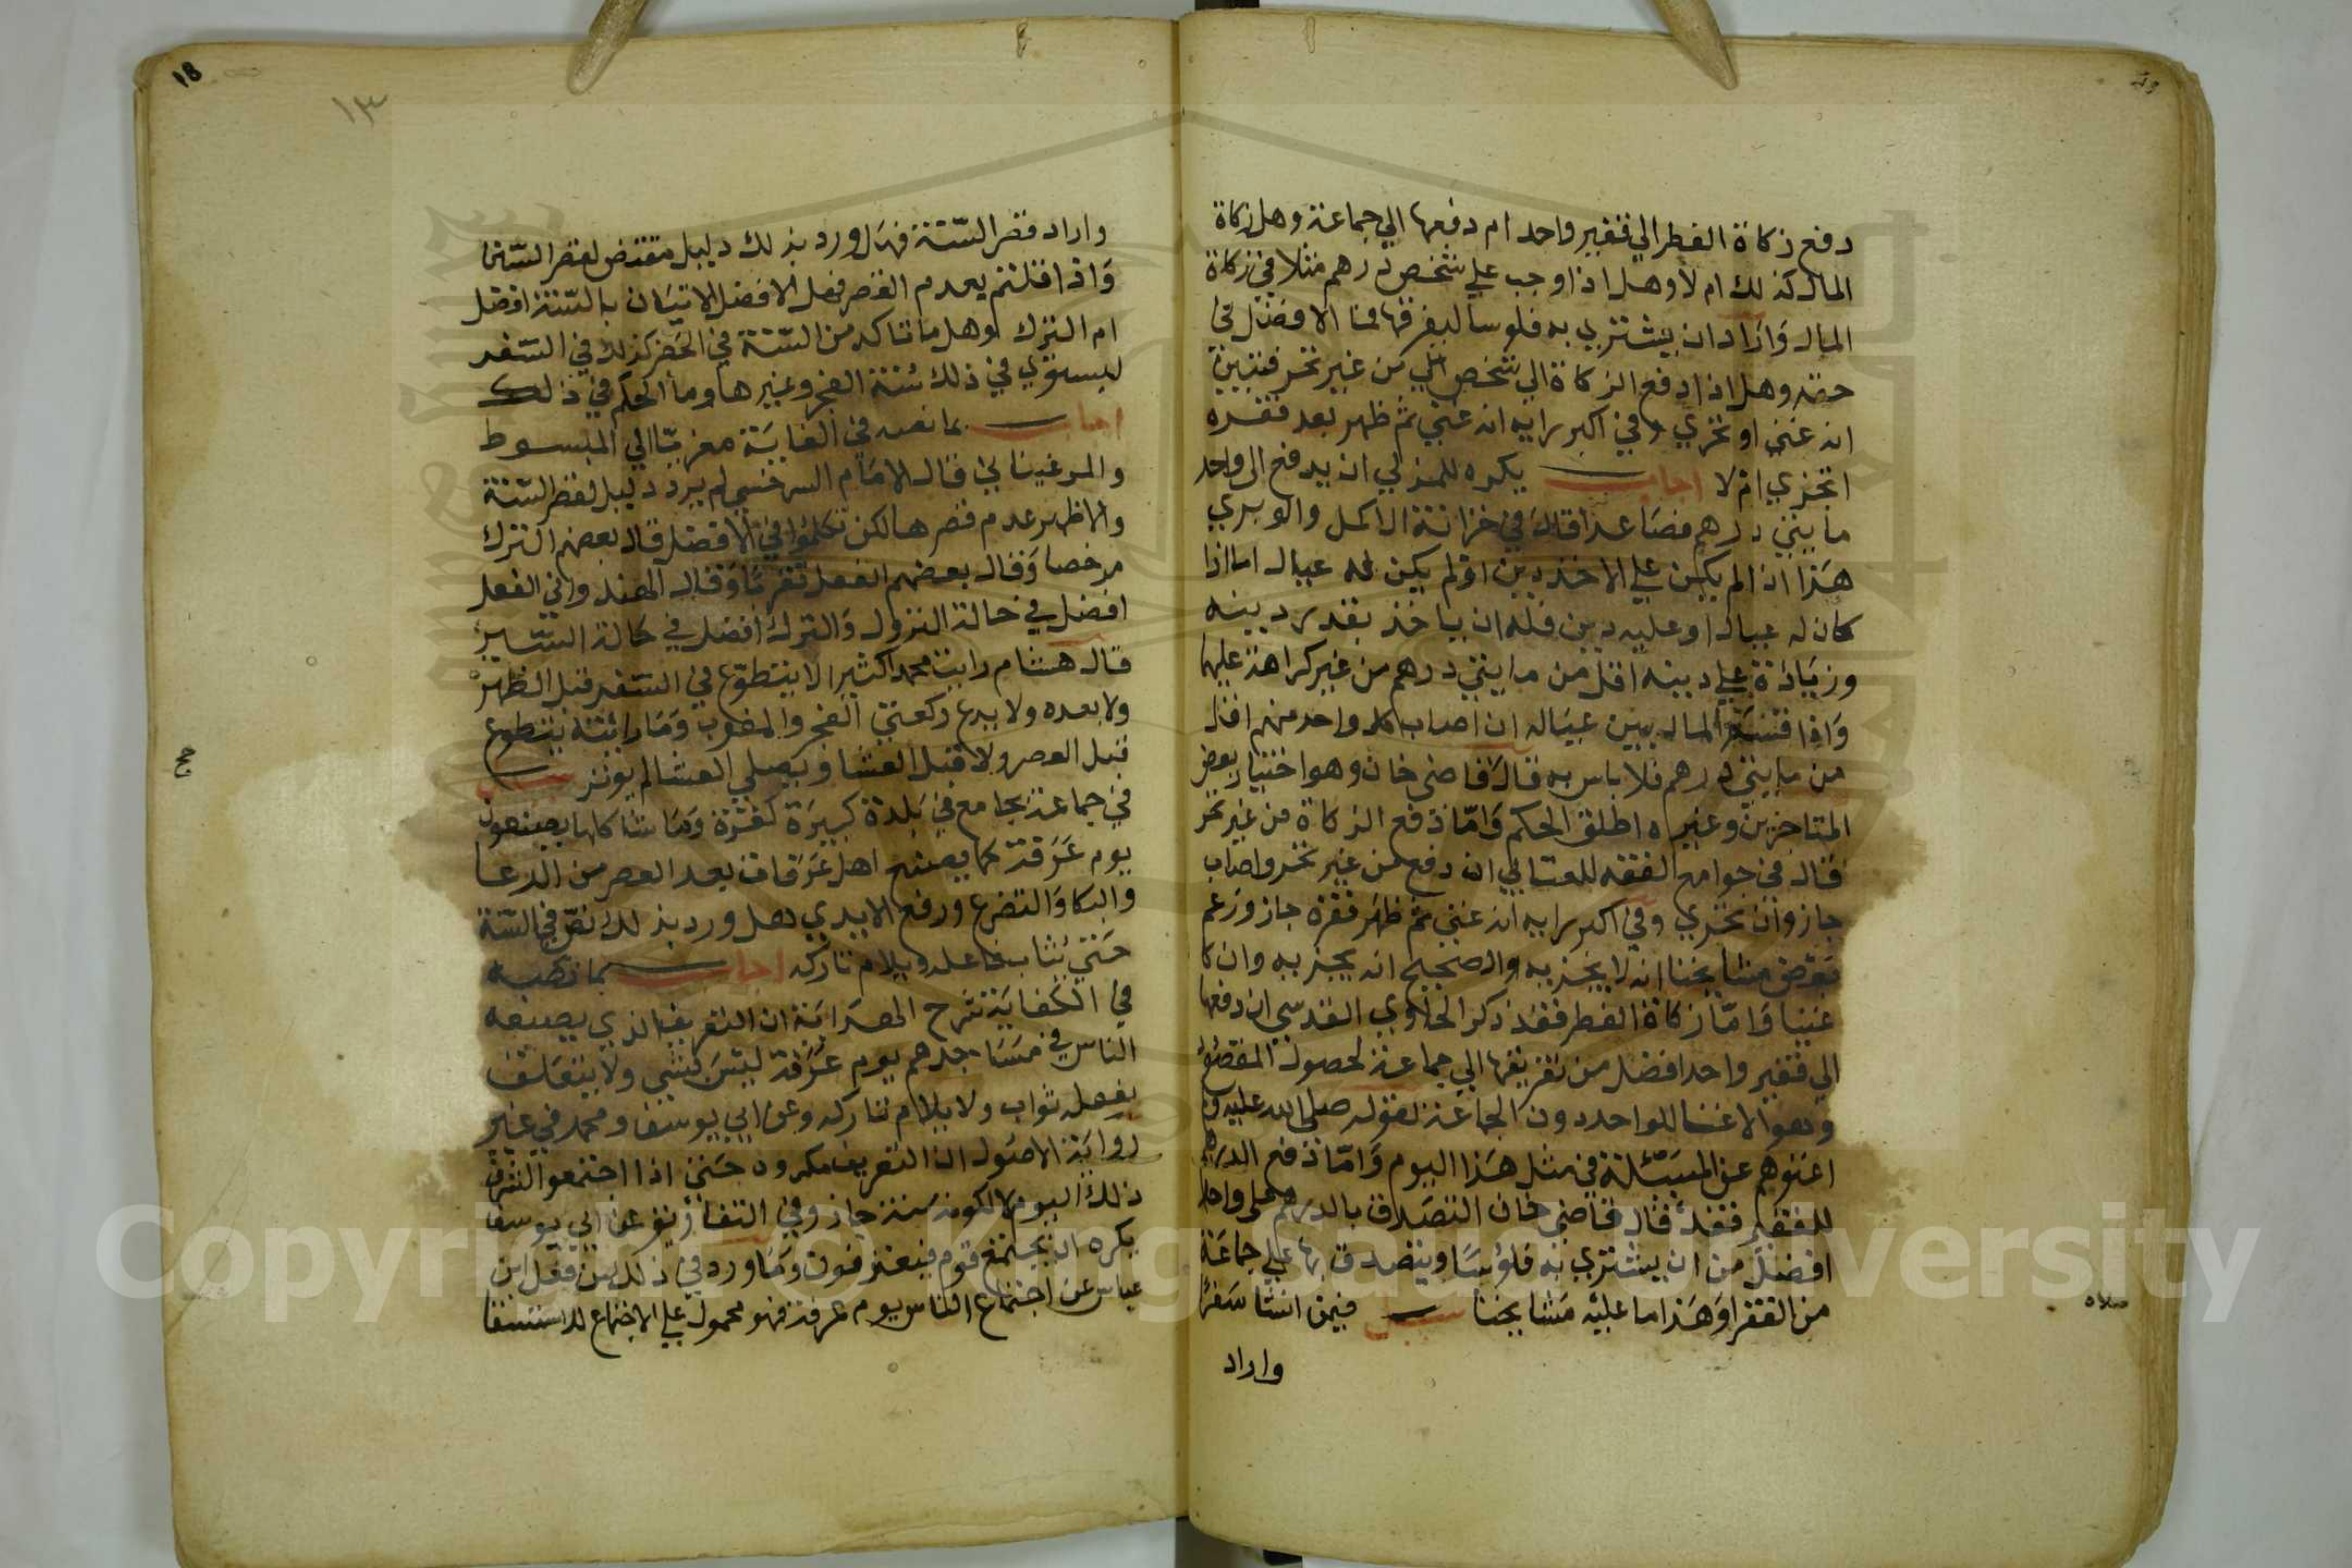 دفع زكاة الفطر الي فقير واحد ام دفعها الي جماعة وهل زكاة
المال كذلك ام لا وهل اذا وجب علي شخص درهم مثلا في زكاة
المال واراد ان يشتري به فلوسا ليفرقها فما الافضل في
حقه وهل اذا دفع الزكاة الي شخص من غير تحر فتبين
انه غني او تحري وفي اكبر رايه انه غني ثم ظهر بعد فقره
اتجزي ام لا اجاب يكره للمزكي ان يدفع الي واحد
مايتي درهم فصاعدا قال في خزانة الاكمل والوبري
هذا اذا لم يكن علي الاخذ دين او لم يكن له عيال اما اذا
كان له عيال او عليه دين فله ان ياخذ بقدر دينه
وزيادة علي دينه اقل من مايتي درهم من غير كراهة عليهما
واذا قسم المال بين عياله ان اصاب كل واحد منهم اقل
من مايتي درهم فلا باس به قال قاضي خان وهو اختيار بعض
المتاخرين وغيره اطلق الحكم واما دفع الزكاة من غير تحر
قال في جوامع الفقه للعتابي ان دفع من غير تحر واصاب
جاز وان تحري وفي اكبر رايه انه غني ثم ظهر فقره جاز وزعم
بعض مشايخنا انه لا يجزيه والصحيح انه يجزيه وان كا
غنيا واما زكاة الفطر فقد ذكر الحاوي القدسي ان دفعها
الي فقير واحد افضل من تفريقها الي جماعة لحصول المقصود
وهو الاغنا للواحد دون الجماعة لقوله صلي الله عليه
اغنوهم عن المسئلة في مثل هذا اليوم واما دفع الدرهم
للفقير فقد قال قاضي خان التصدق بالدرهم علي واحد
افضل من ان يشتري به فلوسا ويتصدق بها علي جماعة
من الفقرا وهذا ما عليه مشايخنا سئل فيمن انشا سفرا
واراد
واراد قصر السنة فهل ورد بذلك دليل مقتض لقصر السنن
واذا قلتم بعدم القصر فهل الافضل الاتيان بالسنة افضل
ام الترك وهل ما تاكد من السنة في الحضر كذلك في السفر
ليستوي في ذلك سنة الفجر وغيرها وما الحكم في ذلك
اجاب بما نصه في الغاية معزيا الي المبسوط
والمرغيناني قال الامام السرخسي لم يرد دليل لقصر السنة
والاظهر عدم قصرها لكن تكلموا في الافضل قال بعضهم الترك
مرخصا وقال بعضهم الفعل تقربا وقال الهندواني الفعل
افضل في حالة النزول والترك افضل في حالة السير
قال هشام رايت محمدا كثيرا لا يتطوع في السفر قبل الظهر
ولا بعده ولا يدع ركعتي الفجر والمغرب وما رائته يتطوع
قبل العصر ولا قبل العشا ويصلي العشا ثم يوتر سئل
في جماعة بجامع في بلدة كبيرة كغزة وما شاكلها يصنعون
يوم عرفة كما يصنع اهل عرفات بعد العصر من الدعا
والبكا والتضرع ورفع الايدي هل ورد بذلك نص في السنة
حتي يثاب فاعله ويلام تاركه اجاب بما نصه
في الكفاية شرح الهداية ان التعريف الذي يصنعه
الناس في مساجدهم يوم عرفة ليس بشي ولا يتعلق
بفعله ثواب ولا يلام تاركه وعن ابي يوسف ومحمد في غير
رواية الاصول ان التعريف مكروه حتي اذا اجتمعوا لشرف
ذلك اليوم لا لكونه سنة جاز وفي عن ابي يوسف
يكره ان يجتمع قوم فيعتزلون وما ورد في ذلك من فعل ابن
عباس عن اجتماع الناس يوم عرفة فهو محمول علي الاجتماع للاستسقا
١٣
18
Copyright © King Saud University